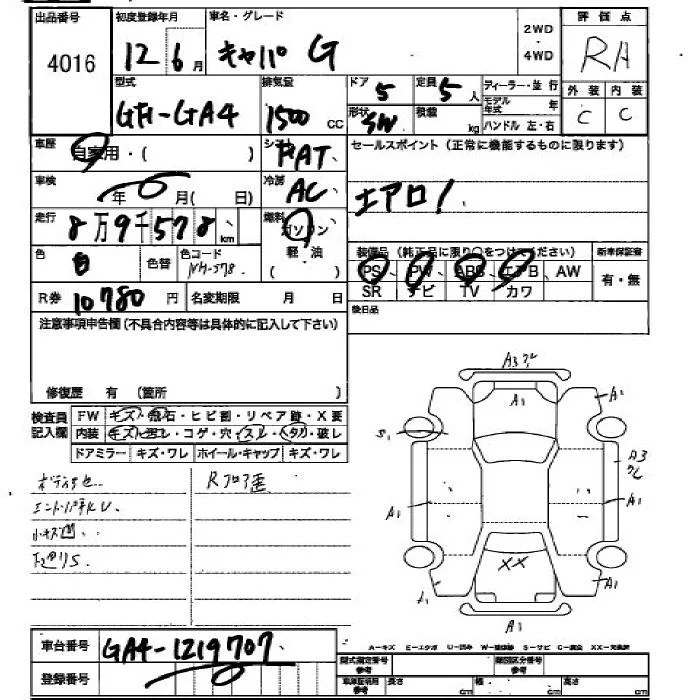 出品番号 初度登録年月 車名・グレード 評価点
4016 12 6月 キャパ G 2WD・4WD RA
型式 排気量 ドア 5 定員 5人 ディーラー・並行 外装 内装
GF1-GA4 1500 CC 形状 SW 積載 kg モデル年式 年 C C
ハンドル 左・右
車歴 自家用・( ) シフト FAT セールスポイント(正常に機能するものに限ります)
車検 年 6月( 日) 冷房 AC エアロ!
走行 8万9千578km 燃料 ガソリン
軽・油
( )
色 白 色替 色コード NH-578
装備品(純正品に限り○をつけてください) 新車保証書
PS PW ABS エアB AW 有・無
SR ナビ TV カワ
R券 10780円 名変期限 月 日 後日品
注意事項申告欄(不具合内容等は具体的に記入して下さい)
修復歴 有 (箇所 )
検査員記入欄 FW キズ・飛石・ヒビ割・リペア跡・X要
内装 キズ・コゲ・穴・スレ・破レ
ドアミラー キズ・ワレ ホイール・キャップ キズ・ワレ
A3
A1
A2
S1
A3
A1
A1
A1
XX
A1
A1
A1
Rフロア歪
小キズ凹、
車台番号 GA4-1219707
登録番号
A-キズ E-エクボ U-凹み W-補修跡 S-サビ C-腐食 XX-交換済
型式指定番号 参考 類別区分番号 参考
車庫証明用 参考 長さ cm 幅 cm 高さ cm